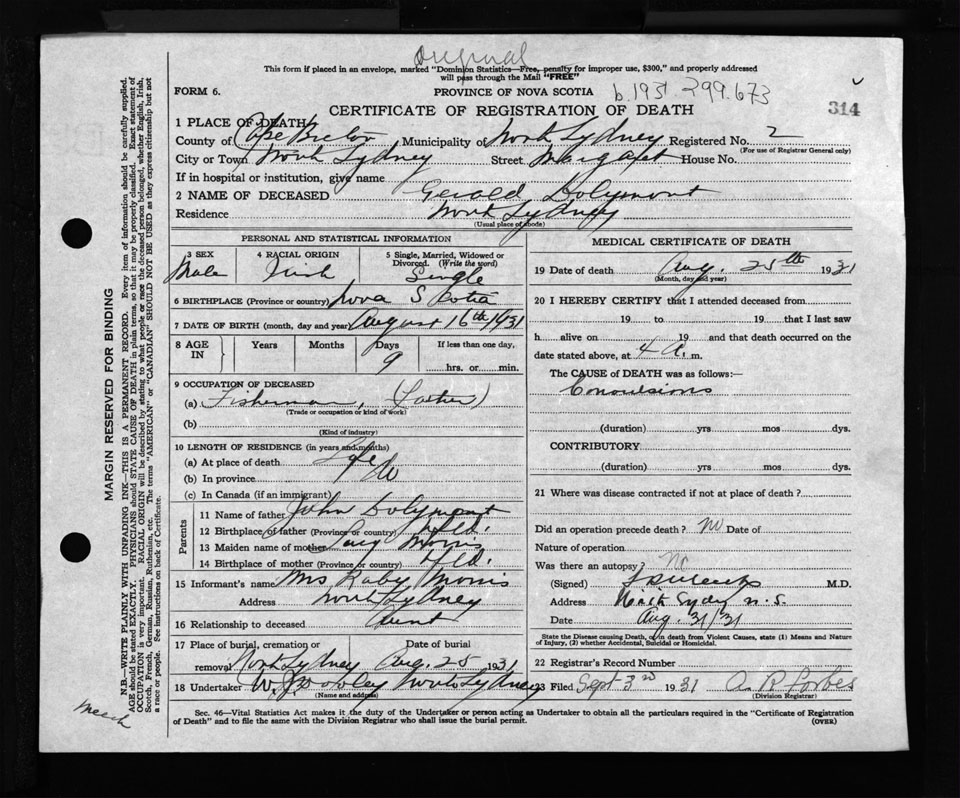 Original
This form if placed in an envelope, marked "Dominion Statistics—Free, penalty for improper use, $300," and properly addressed
will pass through the Mail "FREE"
FORM 6.
PROVINCE OF NOVA SCOTIA
b.1931.299.673
CERTIFICATE OF REGISTRATION OF DEATH
314
1 PLACE OF DEATH
County of Cape Breton Municipality of North Sydney Registered No. 2
(For use of Registrar General only)
City or Town North Sydney Street Margaret House No.
If in hospital or institution, give name
2 NAME OF DECEASED Gerald Dolymont
Residence North Sydney
(Usual place of abode)
PERSONAL AND STATISTICAL INFORMATION
3 SEX Male
4 RACIAL ORIGIN Irish
5 Single, Married, Widowed or
Divorced. (Write the word)
Single
6 BIRTHPLACE (Province or country) Nova Scotia
7 DATE OF BIRTH (month, day and year) August 16th 1931
8 AGE IN Years Months Days 9 If less than one day,
hrs. or min.
9 OCCUPATION OF DECEASED
(a) Fisherman, (Father)
(Trade or occupation or kind of work)
(b)
(Kind of industry)
10 LENGTH OF RESIDENCE (in years and months)
(a) At place of death Life
(b) In province
(c) In Canada (if an immigrant)
Parents
11 Name of father John Dolymont
12 Birthplace of father (Province or country) Nfld.
13 Maiden name of mother Morris
14 Birthplace of mother (Province or country) Nfld.
15 Informant's name Mrs Morris
Address North Sydney
16 Relationship to deceased Aunt
17 Place of burial, cremation or
removal North Sydney
Date of burial
Aug. 25 1931
18 Undertaker W. J. Dooley North Sydney
(Name and address)
MEDICAL CERTIFICATE OF DEATH
19 Date of death Aug. 25th 1931
(Month, day and year)
20 I HEREBY CERTIFY that I attended deceased from
19 to 19 that I last saw
h alive on 19 and that death occurred on the
date stated above, at 4 A. m.
The CAUSE of DEATH was as follows:
Convulsions
(duration) yrs mos dys.
CONTRIBUTORY
(duration) yrs mos dys.
21 Where was disease contracted if not at place of death?
Did an operation precede death? No Date of
Nature of operation
Was there an autopsy No
(Signed) M.D.
Address North Sydney N.S.
Date Aug. 31/31
State the Disease causing Death, or in death from Violent Causes, state (1) Means and Nature
of Injury, (2) whether Accidental, Suicidal or Homicidal.
22 Registrar's Record Number
23 Filed Sept 3rd 1931 A. R. Forbes
(Division Registrar)
Sec. 46—Vital Statistics Act makes it the duty of the Undertaker or person acting as Undertaker to obtain all the particulars required in the "Certificate of Registration
of Death" and to file the same with the Division Registrar who shall issue the burial permit.
(OVER)
MARGIN RESERVED FOR BINDING
N.B.—WRITE PLAINLY WITH UNFADING INK—THIS IS A PERMANENT RECORD. Every item of information should be carefully supplied.
AGE should be stated EXACTLY. PHYSICIANS should STATE CAUSE OF DEATH in plain terms, so that it may be properly classified. Exact statement of
OCCUPATION is very important. RACIAL ORIGIN will be described by stating to what people or race the deceased person belonged, whether English, Irish,
Scotch, French, German, Russian, Ruthenian, etc. The terms "AMERICAN" or "CANADIAN" SHOULD NOT BE USED as they express citizenship but not
a race or people. See instructions on back of Certificate.